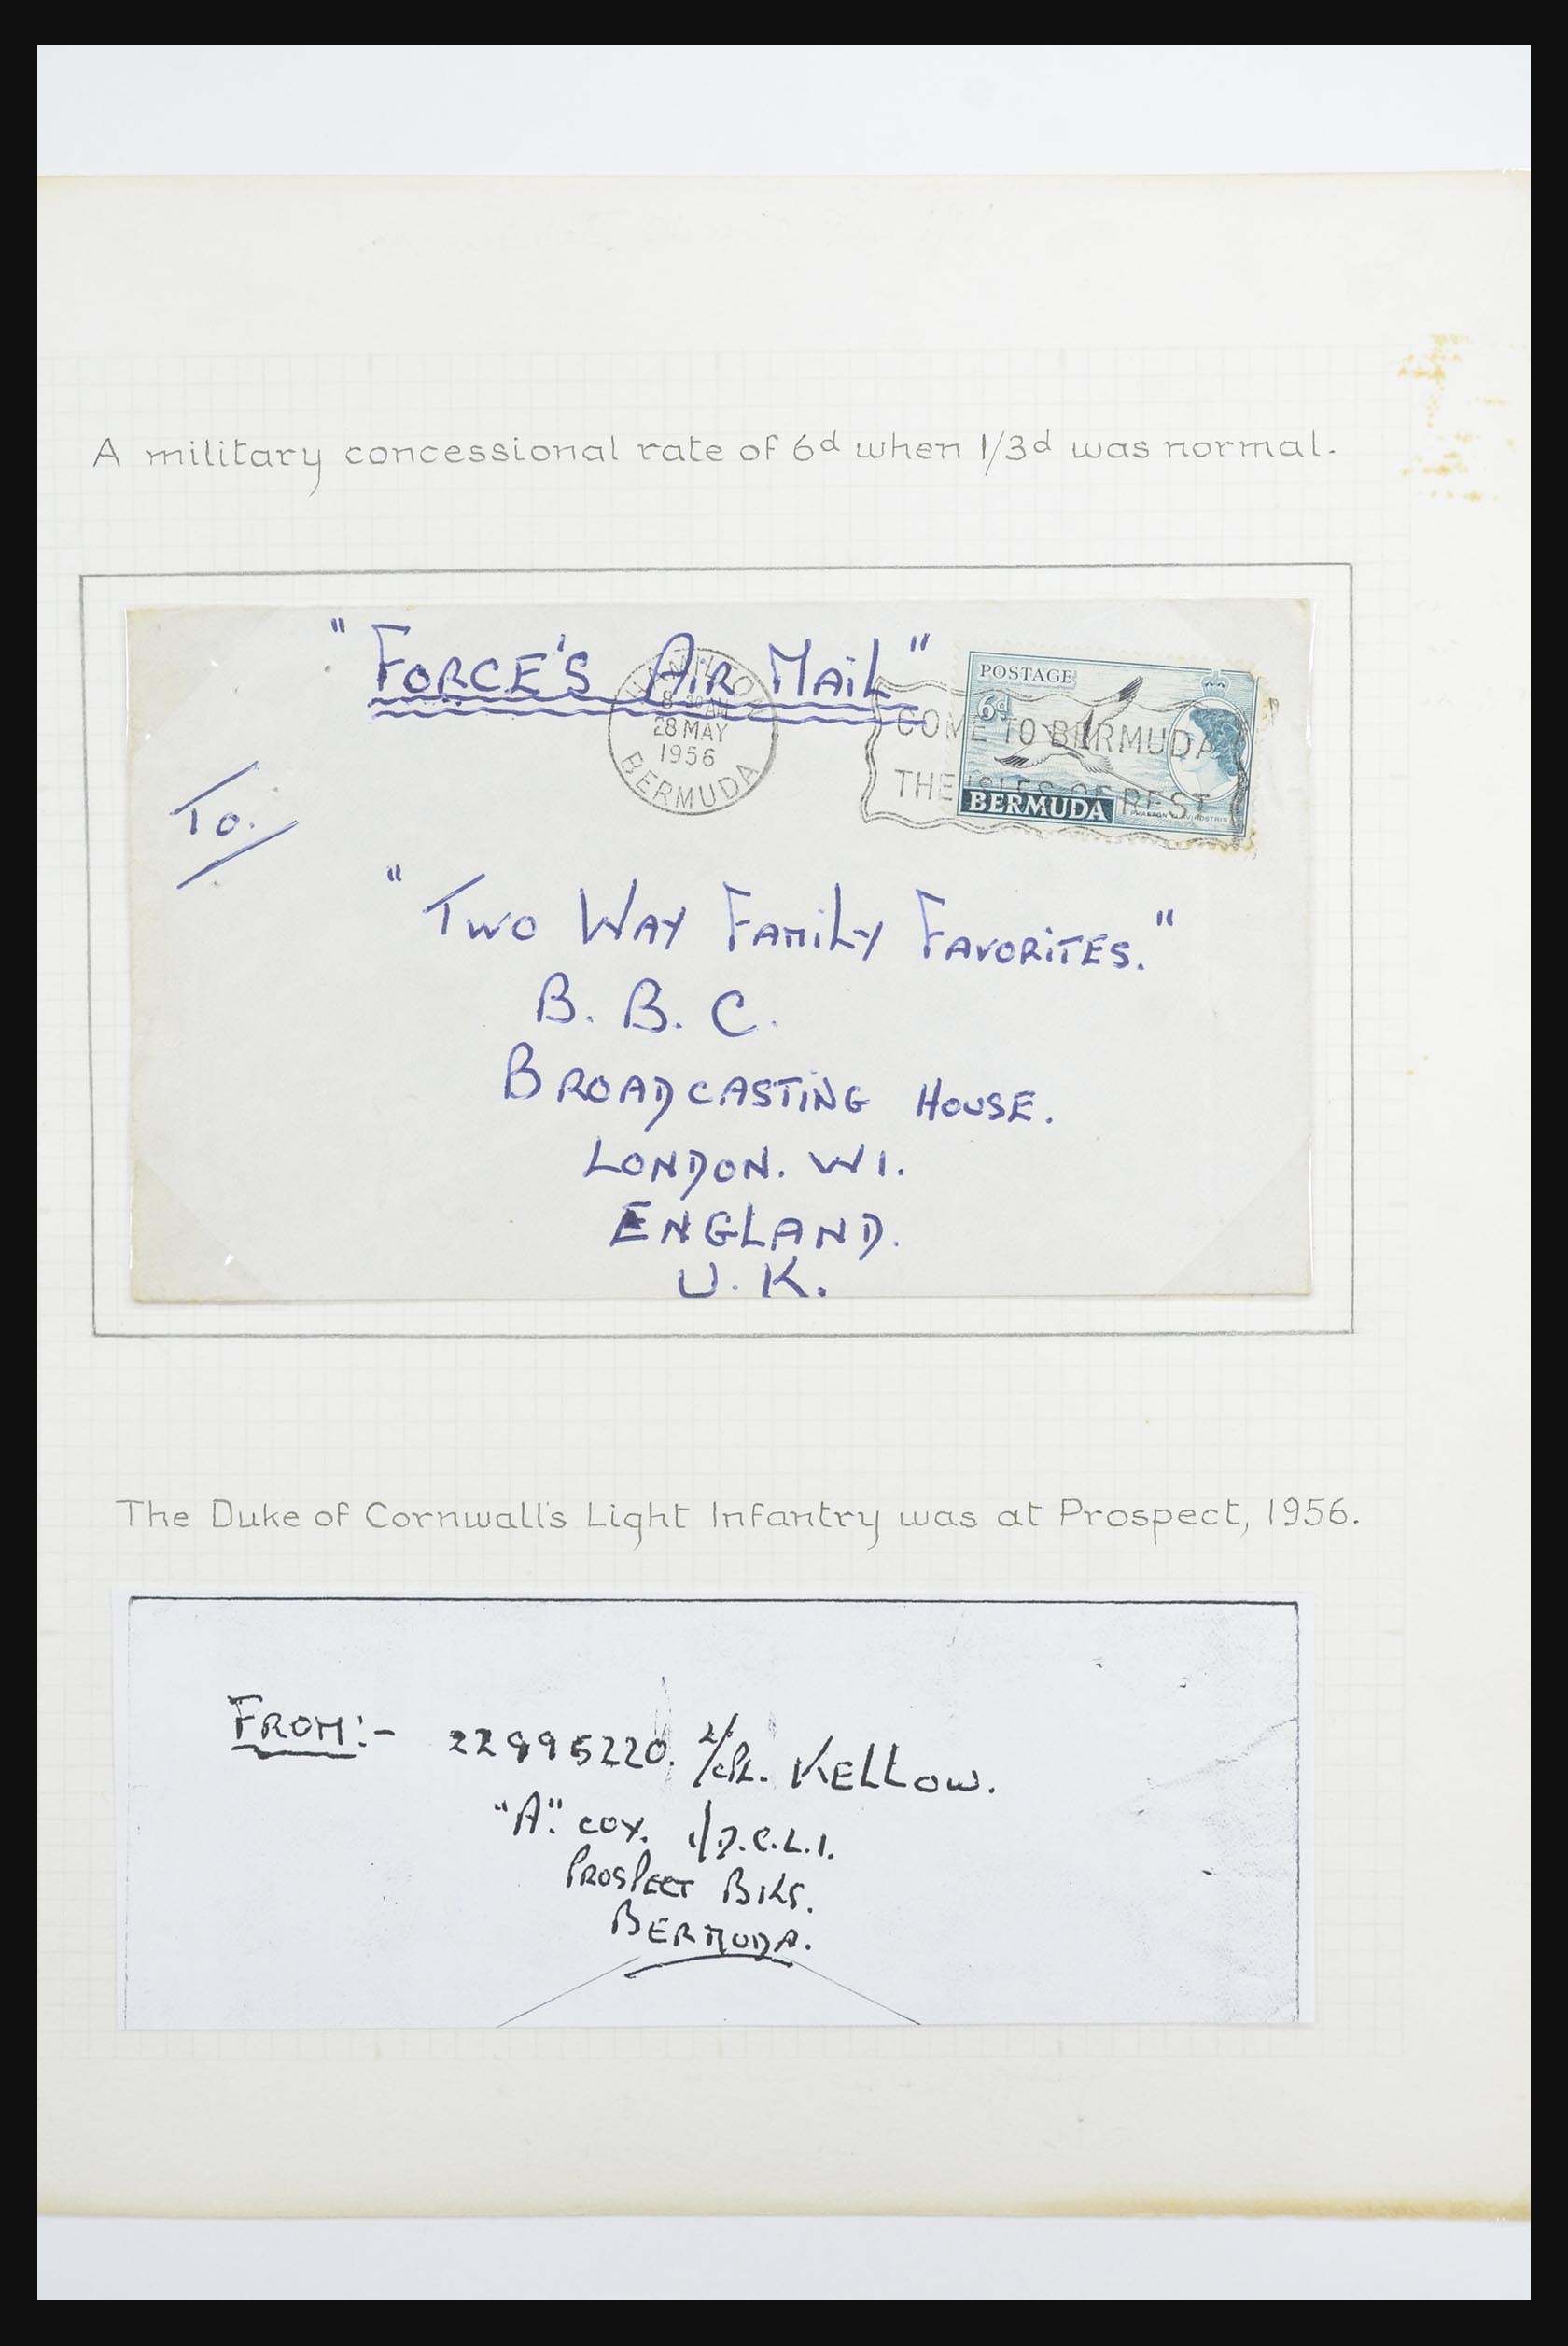 A military concessional rate of 6d when 1/3d was normal.
"FORCE'S AIR MAIL"
HAMILTON
8 30 AM
28 MAY
1956
BERMUDA
COME TO BERMUDA
THE ISLES OF REST
POSTAGE
6d
BERMUDA
To.
"TWO WAY FAMILY FAVORITES."
B. B. C.
BROADCASTING HOUSE.
LONDON. W1.
ENGLAND.
U. K.
The Duke of Cornwall's Light Infantry was at Prospect, 1956.
FROM:- 22995220. L/CPL. KELLOW.
"A". COY. 1/D.C.L.I.
PROSPECT BKS.
BERMUDA.